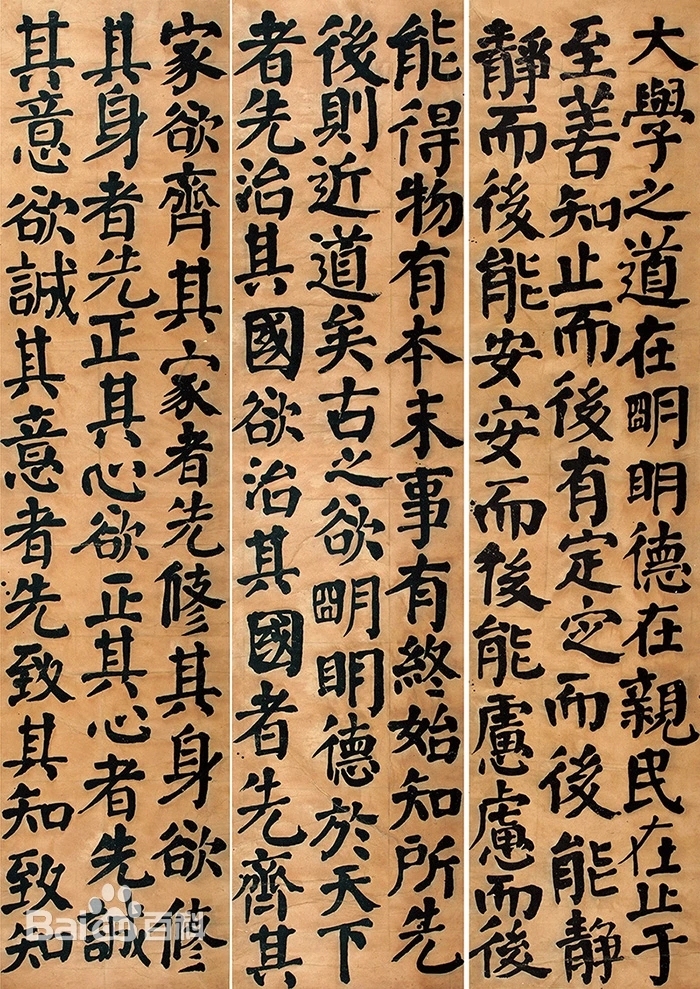 大學之道在朙明德在親民在止于
至善知止而後有定定而後能靜
靜而後能安安而後能慮慮而後
能得物有本末事有終始知所先
後則近道矣古之欲朙明德於天下
者先治其國欲治其國者先齊其
家欲齊其家者先修其身欲修
其身者先正其心欲正其心者先誠
其意欲誠其意者先致其知致知
Baidu百科